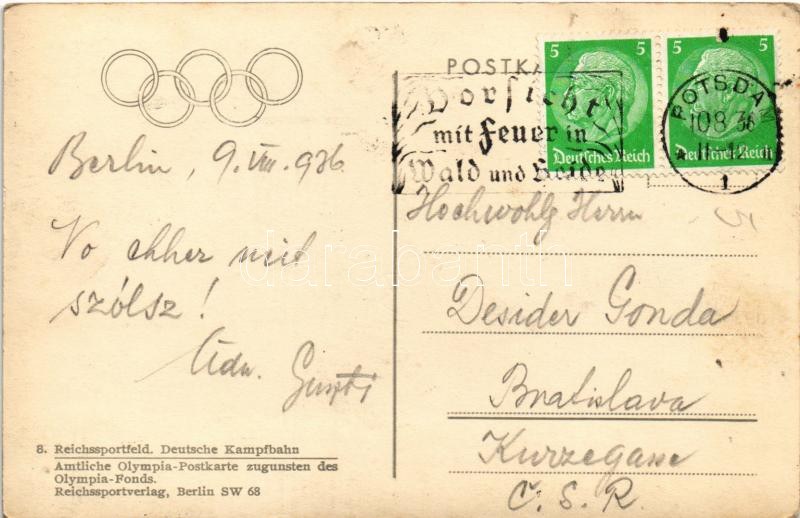 POSTKA
5 5
5 5
Deutsches Reich
Deutsches Reich
Vorsicht
mit Feuer in
Wald und Heide
POTSDAM
10 8 36
11-12
1
Berlin, 9. VIII. 936
No ehhez mit
szólsz!
Üdv. Guszti
Hochwohlg Herrn
Desider Gonda
Bratislava
Kurzegasse
Č. S. R.
8. Reichssportfeld. Deutsche Kampfbahn
Amtliche Olympia-Postkarte zugunsten des
Olympia-Fonds.
Reichssportverlag, Berlin SW 68
darabanth